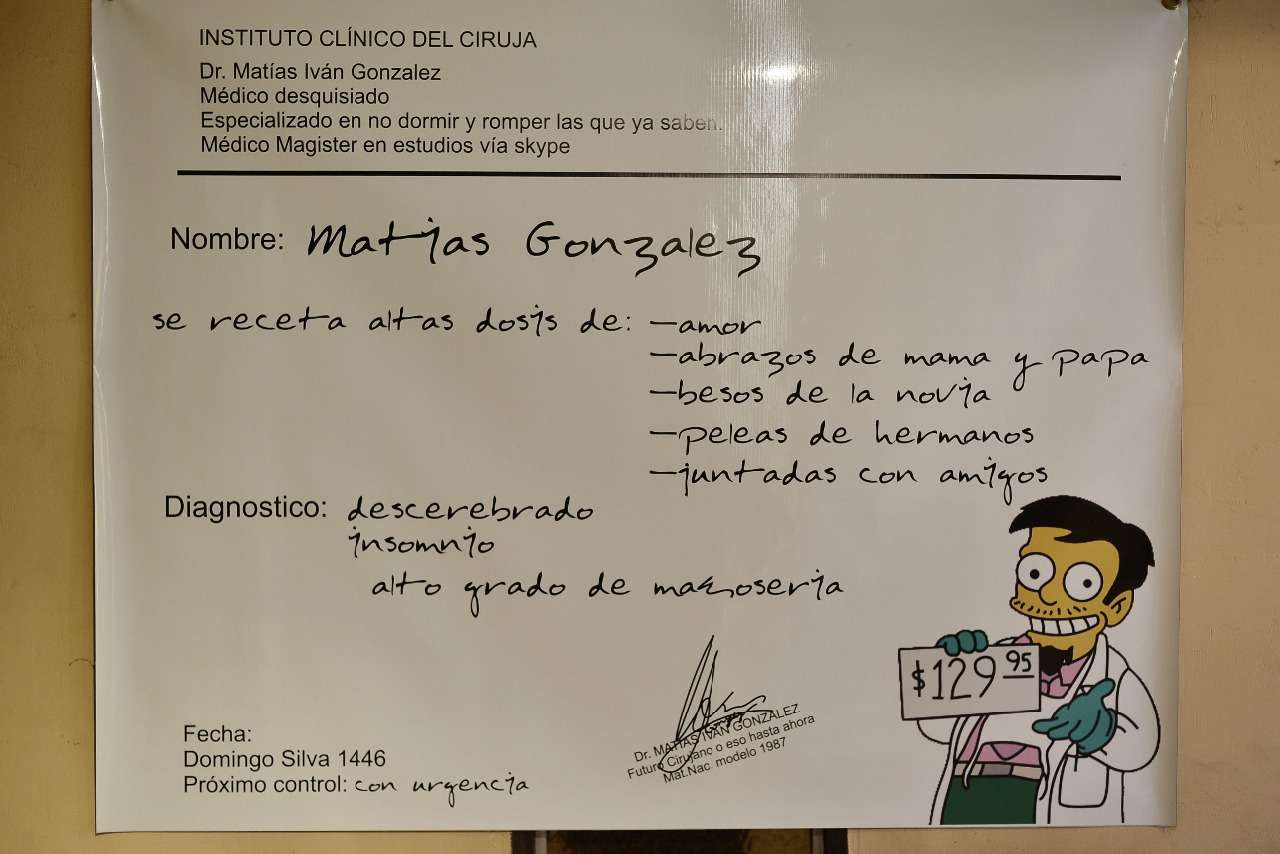 INSTITUTO CLÍNICO DEL CIRUJA
Dr. Matías Iván Gonzalez
Médico desquisiado
Especializado en no dormir y romper las que ya saben.
Médico Magister en estudios vía skype
Nombre: Matias Gonzalez
se receta altas dosis de: -amor
-abrazos de mama y papa
-besos de la novia
-peleas de hermanos
-juntadas con amigos
Diagnostico: descerebrado
insomnio
alto grado de mañoseria
$129 95
Dr. MATIAS IVAN GONZALEZ
Futuro Cirujano o eso hasta ahora
Mat.Nac. modelo 1987
Fecha:
Domingo Silva 1446
Próximo control: con urgencia